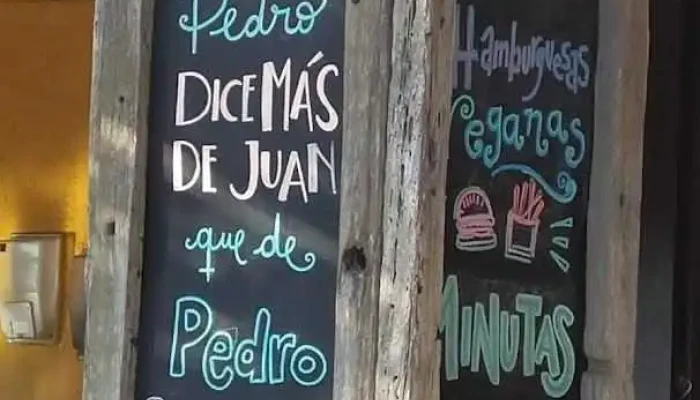 Pedro
DICE MÁS
DE JUAN
que de
Pedro
Hamburguesas
Veganas
MINUTAS